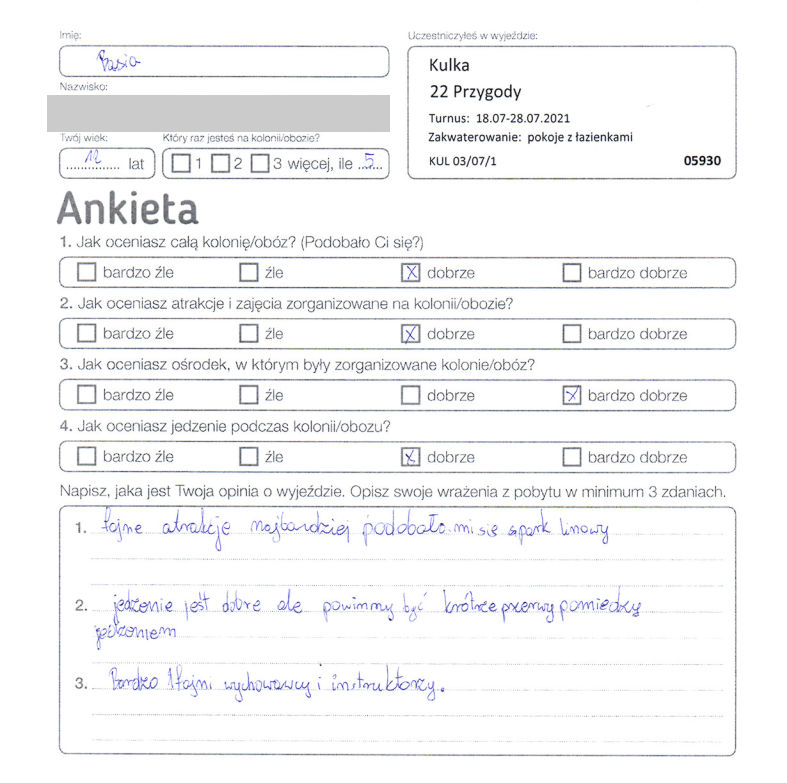 Imię:
Basia
Uczestniczyłeś w wyjeździe:
Kulka
22 Przygody
Turnus: 18.07-28.07.2021
Zakwaterowanie: pokoje z łazienkami
KUL 03/07/1 05930
Nazwisko:
Twój wiek:
12 lat
Który raz jesteś na kolonii/obozie?
1 2 3 więcej, ile 5
Ankieta
1. Jak oceniasz całą kolonię/obóz? (Podobało Ci się?)
bardzo źle źle X dobrze bardzo dobrze
2. Jak oceniasz atrakcje i zajęcia zorganizowane na kolonii/obozie?
bardzo źle źle X dobrze bardzo dobrze
3. Jak oceniasz ośrodek, w którym były zorganizowane kolonie/obóz?
bardzo źle źle dobrze X bardzo dobrze
4. Jak oceniasz jedzenie podczas kolonii/obozu?
bardzo źle źle X dobrze bardzo dobrze
Napisz, jaka jest Twoja opinia o wyjeździe. Opisz swoje wrażenia z pobytu w minimum 3 zdaniach.
1. fajne atrakcje najbardziej podobało mi sie park linowy
2. jedzenie jest dobre ale powinny być krótrze przerwy pomiedzy
jedzeniem
3. Bardzo fajni wychowawcy i instruktorzy.